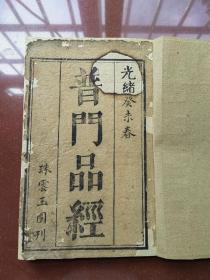 光緒癸未春
普門品經
珠雲玉圃刊